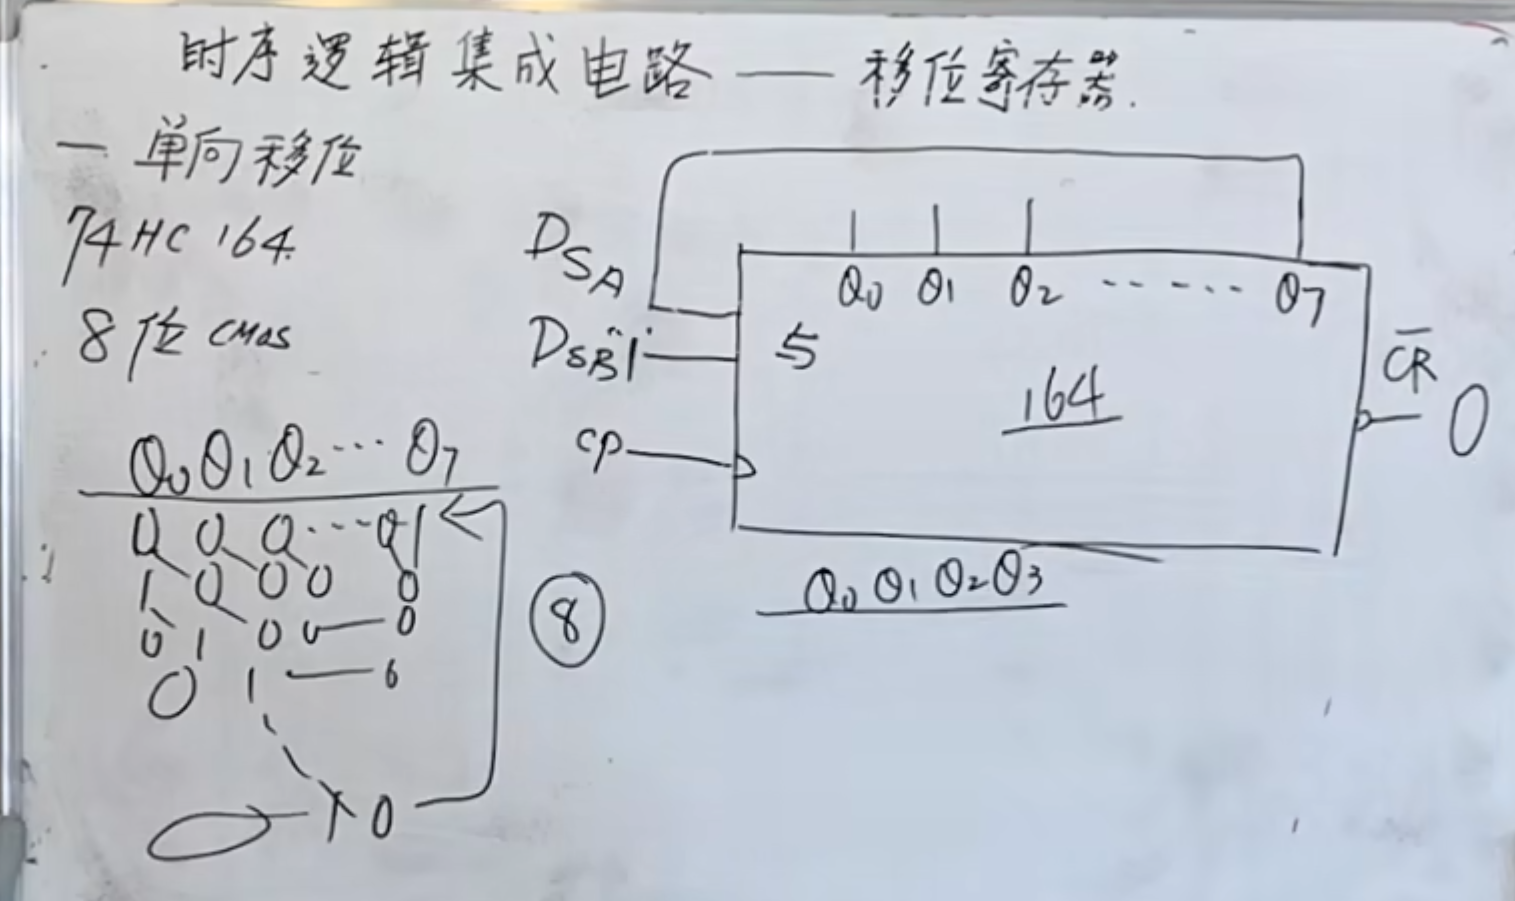 时序逻辑集成电路 —— 移位寄存器.
一 单向移位
74HC 164.
8位 CMOS
Q0 Q1 Q2 ··· Q7
0 0 0 ··· 0 1
1 0 0 0 0
0 1 0 0 — 0
0 1 — 0
1 0
8
DSA
DSB 1
CP
Q0 Q1 Q2 ······ Q7
5
164
C̅R̅ 0
Q0 Q1 Q2 Q3